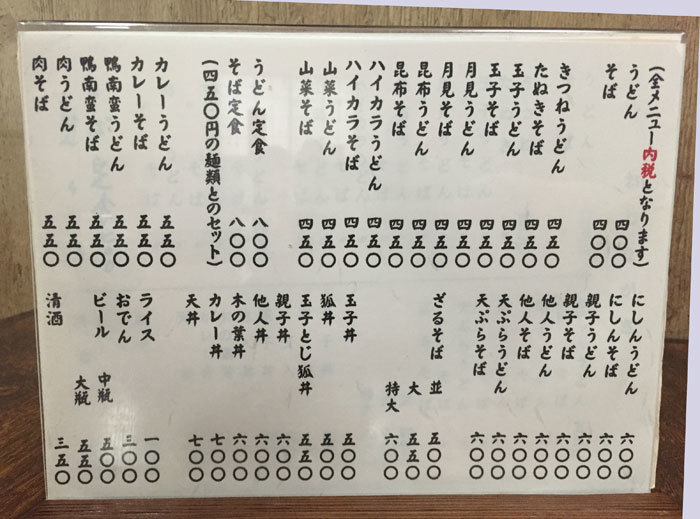 (全メニュー内税となります)
うどん 四〇〇
そば 四〇〇
きつねうどん 四五〇
たぬきそば 四五〇
玉子うどん 四五〇
玉子そば 四五〇
月見うどん 四五〇
月見そば 四五〇
昆布うどん 四五〇
昆布そば 四五〇
ハイカラうどん 四五〇
ハイカラそば 四五〇
山菜うどん 四五〇
山菜そば 四五〇
うどん定食 八〇〇
そば定食 八〇〇
(四五〇円の麺類とのセット)
カレーうどん 五五〇
カレーそば 五五〇
鴨南蛮うどん 五五〇
鴨南蛮そば 五五〇
肉うどん 五五〇
肉そば 五五〇
にしんうどん 六〇〇
にしんそば 六〇〇
親子うどん 六〇〇
親子そば 六〇〇
他人うどん 六〇〇
他人そば 六〇〇
天ぷらうどん 六〇〇
天ぷらそば 六〇〇
ざるそば 並 五〇〇
大 五五〇
特大 六〇〇
玉子丼 五〇〇
狐丼 五〇〇
玉子とじ狐丼 五五〇
親子丼 六〇〇
他人丼 六〇〇
木の葉丼 六〇〇
カレー丼 七〇〇
天丼 七〇〇
ライス 一〇〇
おでん 三〇〇
ビール 中瓶 五〇〇
大瓶 五五〇
清酒 三五〇